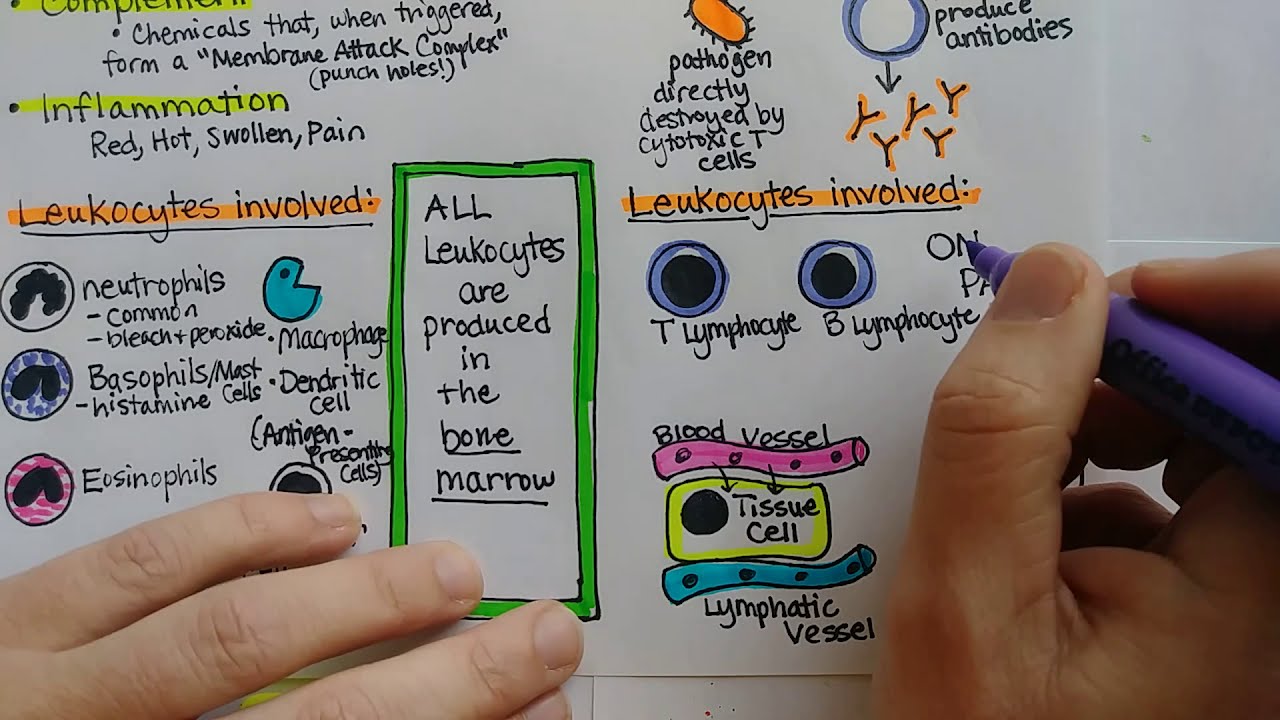 • Complement
• Chemicals that, when triggered,
form a "Membrane Attack Complex"
(punch holes!)
• Inflammation
Red, Hot, Swollen, Pain
Leukocytes involved:
neutrophils
- common
- bleach + peroxide
Basophils/Mast
Cells
- histamine
Eosinophils
• Macrophage
• Dendritic
cell
(Antigen-
Presenting
Cells)
ALL
Leukocytes
are
produced
in
the
bone
marrow
pathogen
directly
destroyed by
cytotoxic T
cells
produce
antibodies
Leukocytes involved:
T Lymphocyte
B Lymphocyte
ON
PA
Blood Vessel
Tissue
Cell
Lymphatic
Vessel
Office